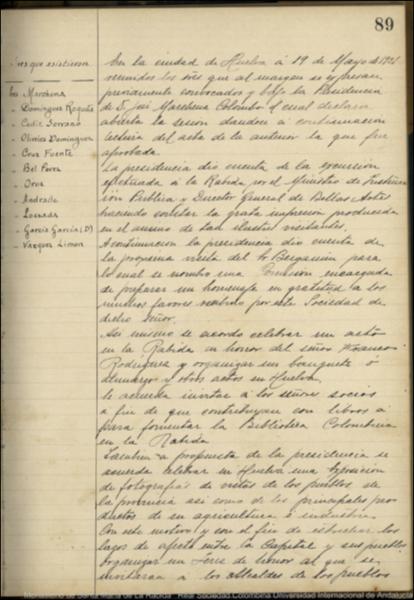 89
Sres que asistieron
Sres Marchena
- Domínguez Roqueta
- Cadiz Serrano
- Oliveira Dominguez
- Cruz Fuente
- Bel Perez
- Oros
- Madrado
- Losada
- Garcia Garcia (D)
- Vazquez Limon
En la ciudad de Huelva á 19 de Mayo de 1921
reunidos los sres que al margen se expresan
previamente convocados y bajo la Presidencia
de D. José Marchena Colombo el cual declaró
abierta la sesion dandose á continuacion
lectura del acta de la anterior la que fue
aprobada.
La presidencia dio cuenta de la excursion
efectuada á la Rabida por el Ministro de Instruc
cion Publica y Director General de Bellas Artes
haciendo constar la grata impresion producida
en el animo de tan ilustres visitantes.
A continuacion la presidencia dio cuenta de
la proxima visita del Sr Bergamin para
lo cual se nombro una Comision encargada
de preparar un homenaje en gratitud a los
muchos favores recibido por esta Sociedad de
dicho señor.
Asi mismo se acordo celebrar un acto
en la Rabida en honor del señor
Rodriguez y organizar un banquete ó
almuerzo y otros actos en Huelva.
Se acuerda invitar a los señores socios
a fin de que contribuyan con libros
para fomentar la Biblioteca Colombina
en la Rabida
Tambien a propuesta de la presidencia se
acuerda celebrar en Huelva una Exposicion
de fotografias de vistas de los pueblos de
la provincia asi como de los principales pro
ductos de su agricultura é industria.
Con este motivo y con el fin de estrechar los
lazos de afecto entre la Capital y sus pueblos
organizar una serie de honor al que se
invitaran a los alcaldes de los pueblos
Monasterio de Santa María de La Rábida - Real Sociedad Colombina Universidad Internacional de Andalucía